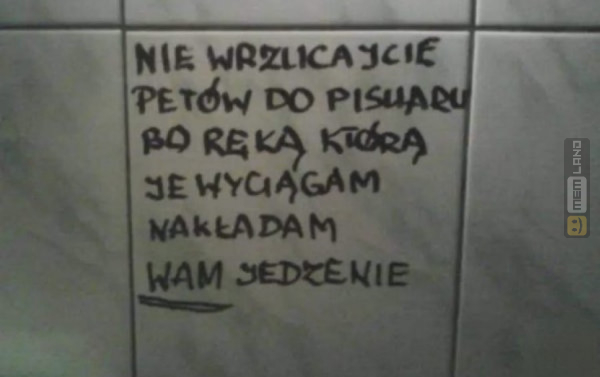 NIE WRZUCAJCIE
PETÓW DO PISUARU
BO RĘKĄ KTÓRĄ
JE WYCIĄGAM
NAKŁADAM
WAM JEDZENIE
MEMLAND